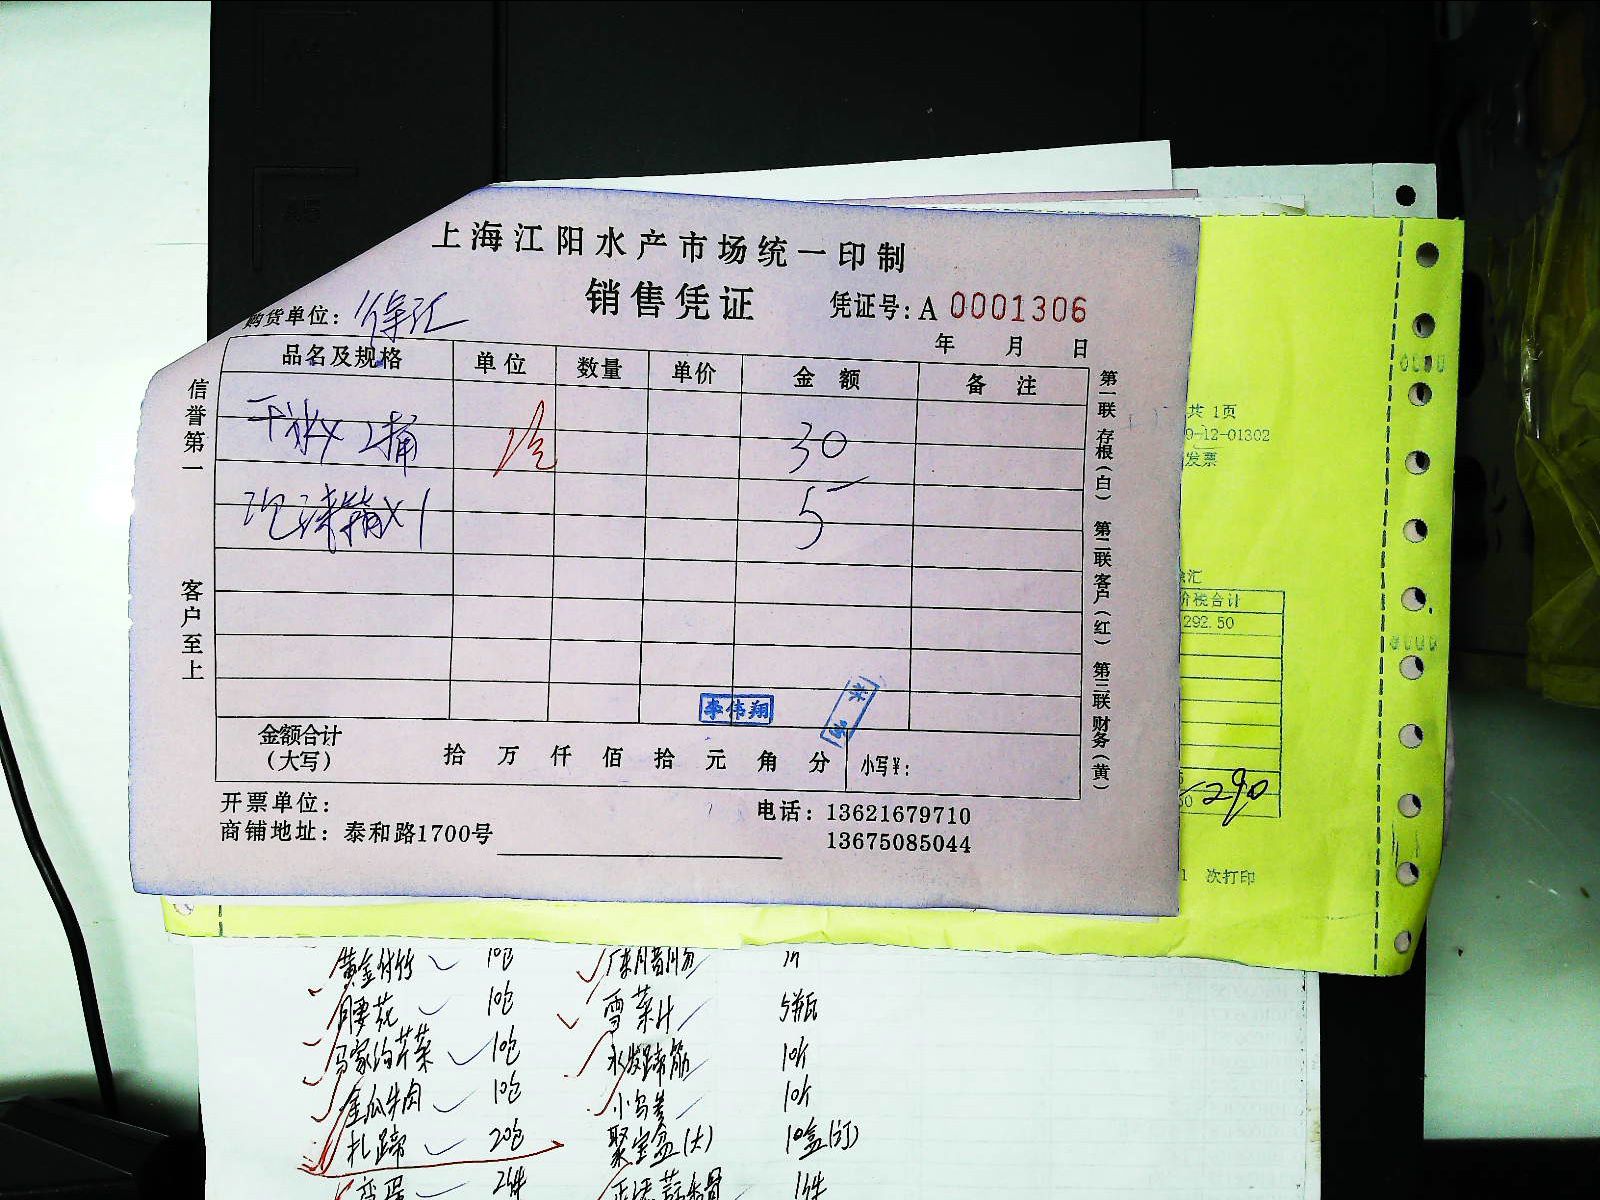 上海江阳水产市场统一印制
销售凭证
凭证号: A 0001306
购货单位: 徐汇
年 月 日
品名及规格 单位 数量 单价 金额 备注
干冰x 2桶 30
泡沫箱x1 5
金额合计(大写) 拾 万 仟 佰 拾 元 角 分 小写¥:
李伟翔
开票单位:
商铺地址: 泰和路1700号
电话: 13621679710
13675085044
信誉第一
客户至上
第一联 存根(白) 第二联 客户(红) 第三联 财务(黄)
共 1页
9-12-01302
发票
价税合计
292.50
290
1 次打印
黄金付竹 10包
月腰花 10包
雪菜汁 5瓶
马家沟芹菜 10包
水发蹄筋 10斤
金瓜牛肉 10包
10斤
扎蹄 20包
聚宝盆(大) 10盒(订)
2件
1件